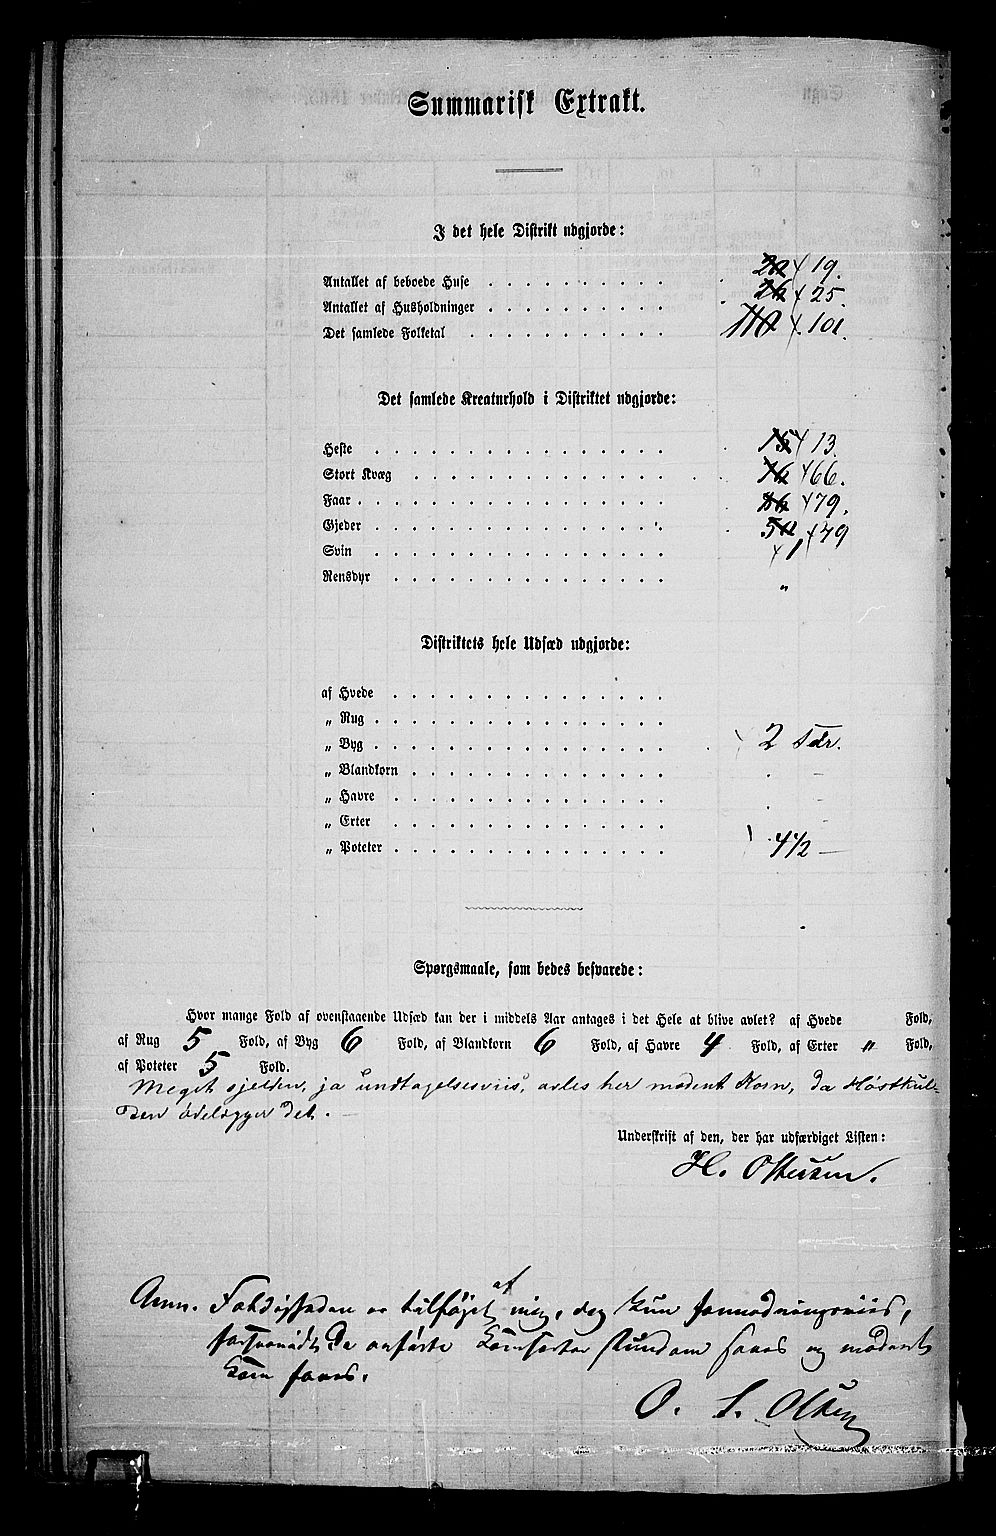 Summarisk Extrakt.
I det hele Distrikt udgjorde:
Antallet af beboede Huse 19.
Antallet af Husholdninger 26 25.
Det samlede Folketal 110 101.
Det samlede Kreaturhold i Distriktet udgjorde:
Heste 15 13.
Stort Kvæg 76 66.
Faar 86 79.
Gjeder 50 49
Svin 1
Rensdyr "
Distriktets hele Udsæd udgjorde:
af Hvede
" Rug
" Byg 2 Tdr.
" Blandkorn
" Havre
" Erter
" Poteter 4½ —
Spørgsmaale, som bedes besvarede:
Hvor mange Fold af ovenstaaende Udsæd kan der i middels Aar antages i det Hele at blive avlet? af Hvede Fold,
af Rug 5 Fold, af Byg 6 Fold, af Blandkorn 6 Fold, af Havre 4 Fold, af Erter " Fold,
af Poteter 5 Fold.
Meget sjelden, ja undtagelsesviis, avles her modent Korn, da Høstkul-
den ødelægger det. —
Underskrift af den, der har udfærdiget Listen:
H. Ottersen.
Anm. Foldigheden er tilføjet af mig, dog kun formodningsviis,
forsaavidt de anførte Kornsorter stundom saaes og modent
Korn faaes.
O. S. Olsen